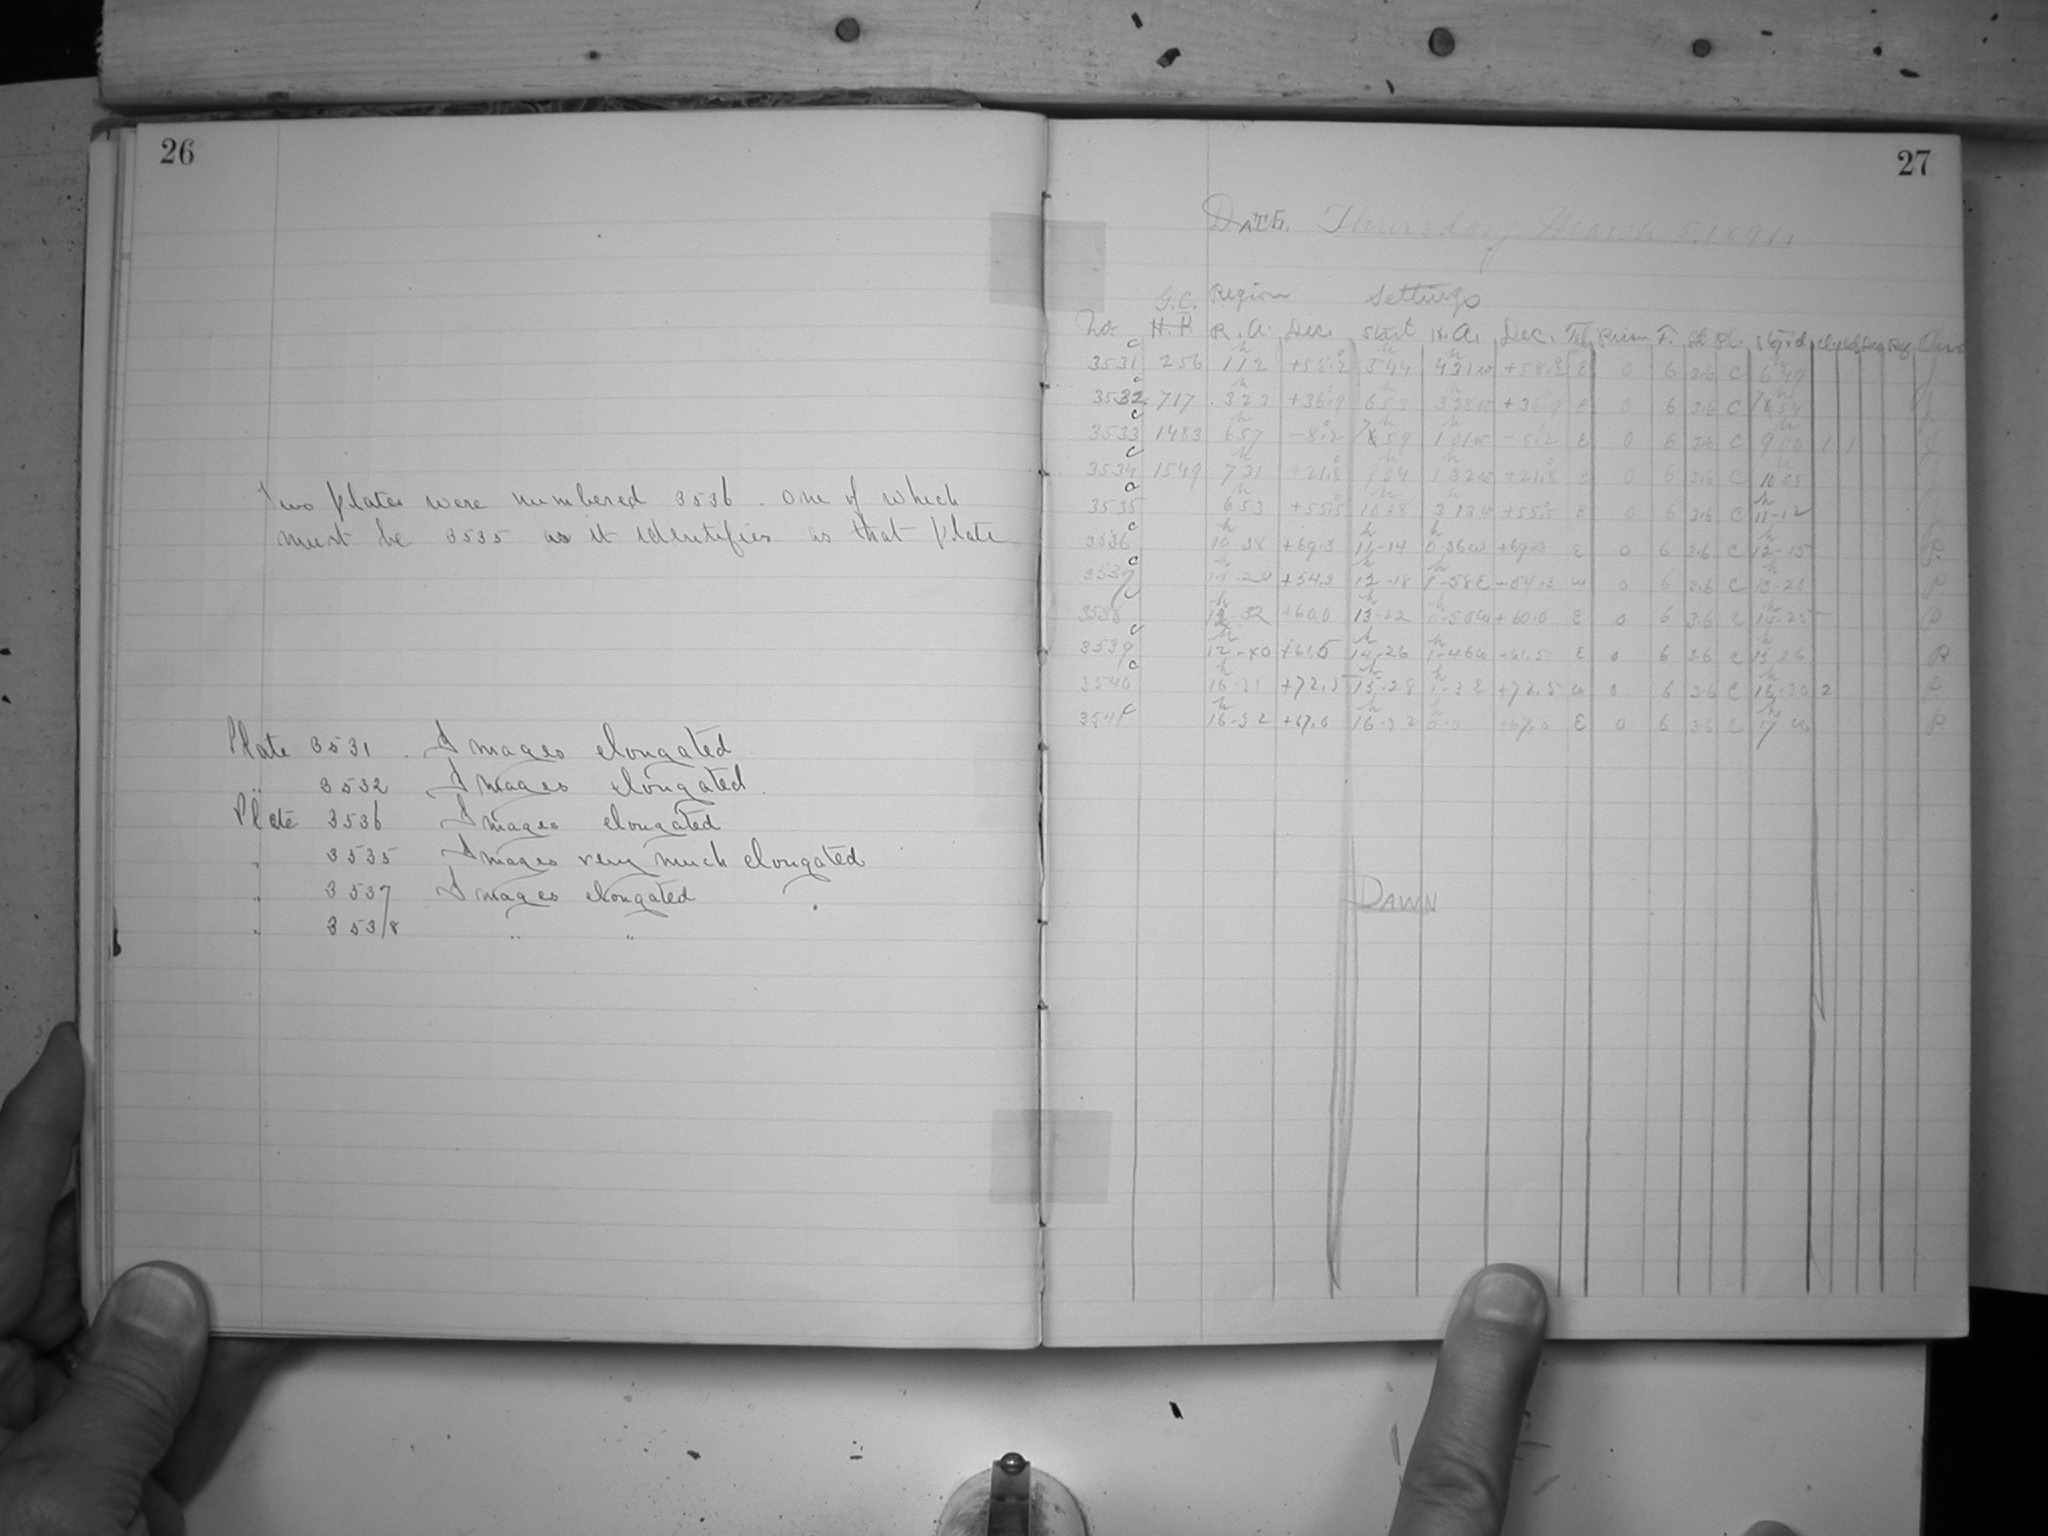 26
Two plates were numbered 3536. One of which
must be 3535 as it identifies as that plate
Plate 3531. Images elongated
" 3532 Images elongated.
Plate 3536 Images elongated
" 3535 Images very much elongated
" 3537 Images elongated
" 3538 " "
27
DATE. Thursday March 5, 1891.
G.C. Region Settings
No. H.P. R.A. Dec. Start H.A. Dec. F. Stop'd
3531 c 256 1 12 +58.2 5 44 4 31 w +58.2 E 0 6 3.6 C 6 49 J
3532 c 717 3 23 +36.9 6 53 +36.9 E 0 6 3.6 C 7 54 J
3533 c 1483 6 57 -8.2 7 59 1 01 w -8.2 E 0 6 3.6 C 9 00 1 1 J
3534 c 1549 7 31 +21.8 9 04 1 32 w +21.8 E 0 6 3.6 C 10 05 J
3535 c 6 53 +55.5 10 08 3 13 w +55.5 E 0 6 3.6 C 11-12 J
3536 c 10 38 +69.3 11-14 0-36 w +69.3 E 0 6 3.6 C 12-15 P
3537 c +54.3 12-18 1-58 E +54.3 w 0 6 3.6 C 13-20 P
3538 c 12.32 +60.0 13-22 0-50 w +60.0 E 0 6 3.6 C 14-25 P
3539 c 12-40 +61.5 14-26 1-46 w +61.5 E 0 6 3.6 C 15 26 P
3540 c 16-31 +72.5 15-28 1-3 E +72.5 w 0 6 3.6 C 16-30 2 P
3541 c 16-32 +67.0 16-32 0-0 +67.0 E 0 6 3.6 C 17 P
DAWN